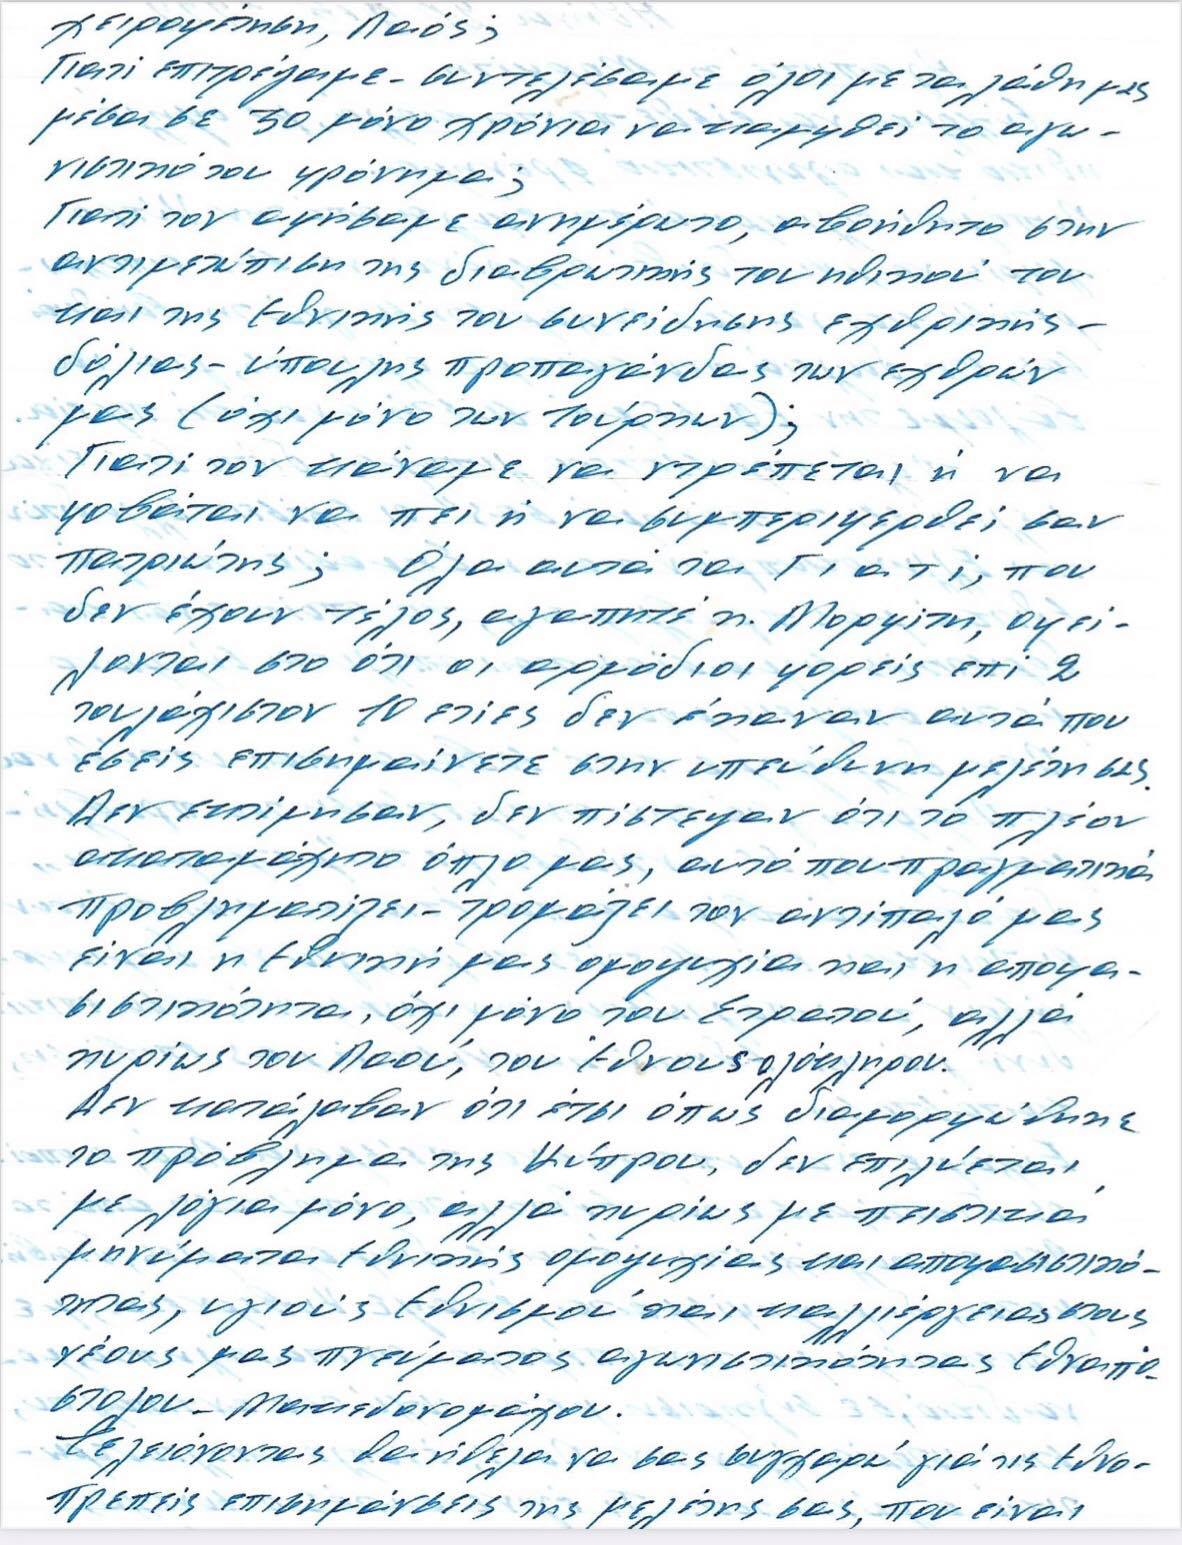 χειραγώγηση, Λαός;
Γιατί επιτρέψαμε - συντελέσαμε όλοι με τα λάθη μας
μέσα σε 30 μόνο χρόνια να καμφθεί το αγω-
νιστικό του φρόνημα;
Γιατί τον αφήσαμε ανημέρωτο, αβοήθητο στην
αντιμετώπιση της διαβρωτικής του ηθικού του
και της εθνικής του συνείδησης εχθρικής -
δόλιας - ύπουλης προπαγάνδας των εχθρών
μας (όχι μόνο των Τούρκων);
Γιατί τον κάναμε να ντρέπεται ή να
φοβάται να πει ή να συμπεριφερθεί σαν
πατριώτης; Όλα αυτά τα Γιατί, που
δεν έχουν τέλος, αγαπητέ κ. Μορφίτη, οφεί-
λονται στο ότι οι αρμόδιοι φορείς επί 2
τουλάχιστον 10 ετίες δεν έκαναν αυτά που
εσείς επισημαίνετε στην υπεύθυνη μελέτη σας.
Δεν εκτίμησαν, δεν πίστεψαν ότι το πλέον
ακαταμάχητο όπλο μας, αυτό που πραγματικά
προβληματίζει - τρομάζει τον αντίπαλό μας
είναι η εθνική μας ομοψυχία και η αποφα-
σιστικότητα, όχι μόνο του Στρατού, αλλά
κυρίως του Λαού, του Έθνους ολόκληρου.
Δεν κατάλαβαν ότι έτσι όπως διαμορφώθηκε
το πρόβλημα της Κύπρου, δεν επιλύεται
με λόγια μόνο, αλλά κυρίως με πειστικά
μηνύματα εθνικής ομοψυχίας και αποφασιστικό-
τητας, υγιούς εθνισμού και καλλιέργειας στους
νέους μας πνεύματος αγωνιστικότητας Εθναπο-
στόλου - Μακεδονομάχου.
Τελειώνοντας θα ήθελα να σας συγχαρώ γιά τις εθνο-
πρεπείς επισημάνσεις της μελέτης σας, που είναι